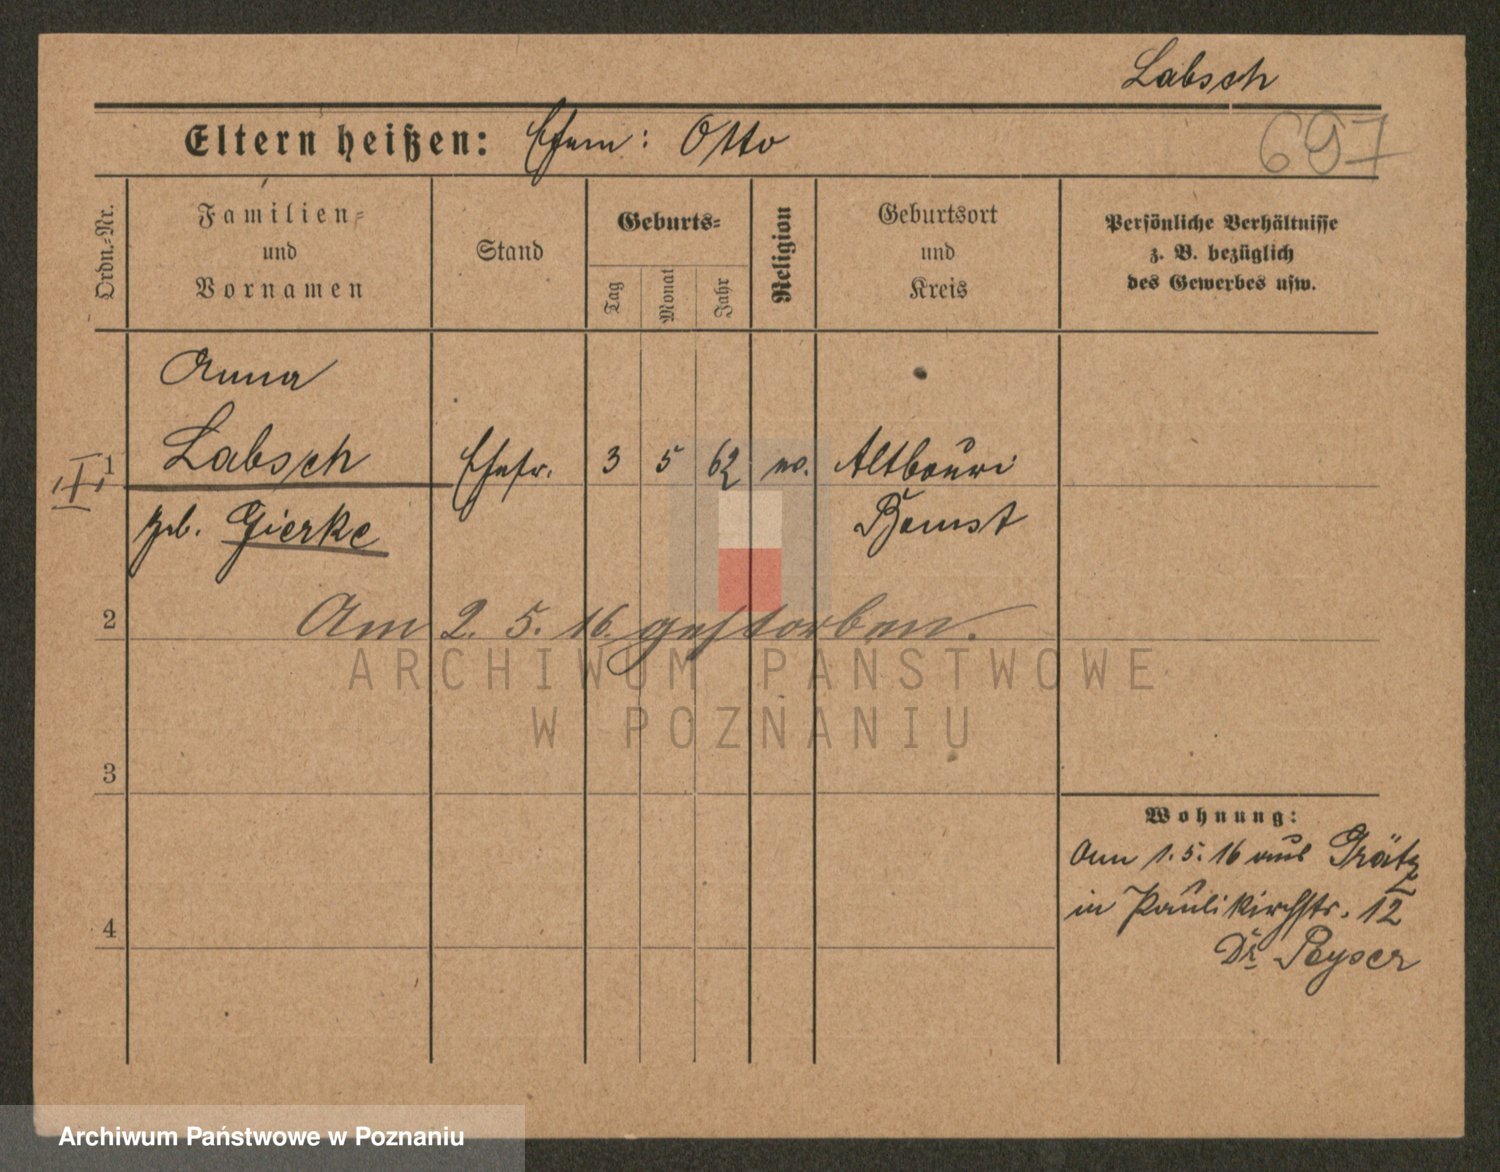 Labsch
697
Eltern heißen: Ehem: Otto
Ordn.-Nr.
Familien-
und
Vornamen
Stand
Geburts-
Tag
Monat
Jahr
Religion
Geburtsort
und
Kreis
Persönliche Verhältnisse
z. B. bezüglich
des Gewerbes usw.
Anna
1 Labsch Ehefr. 3 5 62 ev.
geb. Gierke Bomst
2 Am 2. 5. 16. gestorben.
ARCHIWUM PAŃSTWOWE
W POZNANIU
3
Wohnung:
Am 1. 5. 16 aus Grätz
in Paulikirchstr. 12
4
Dr. Peyser
Archiwum Państwowe w Poznaniu